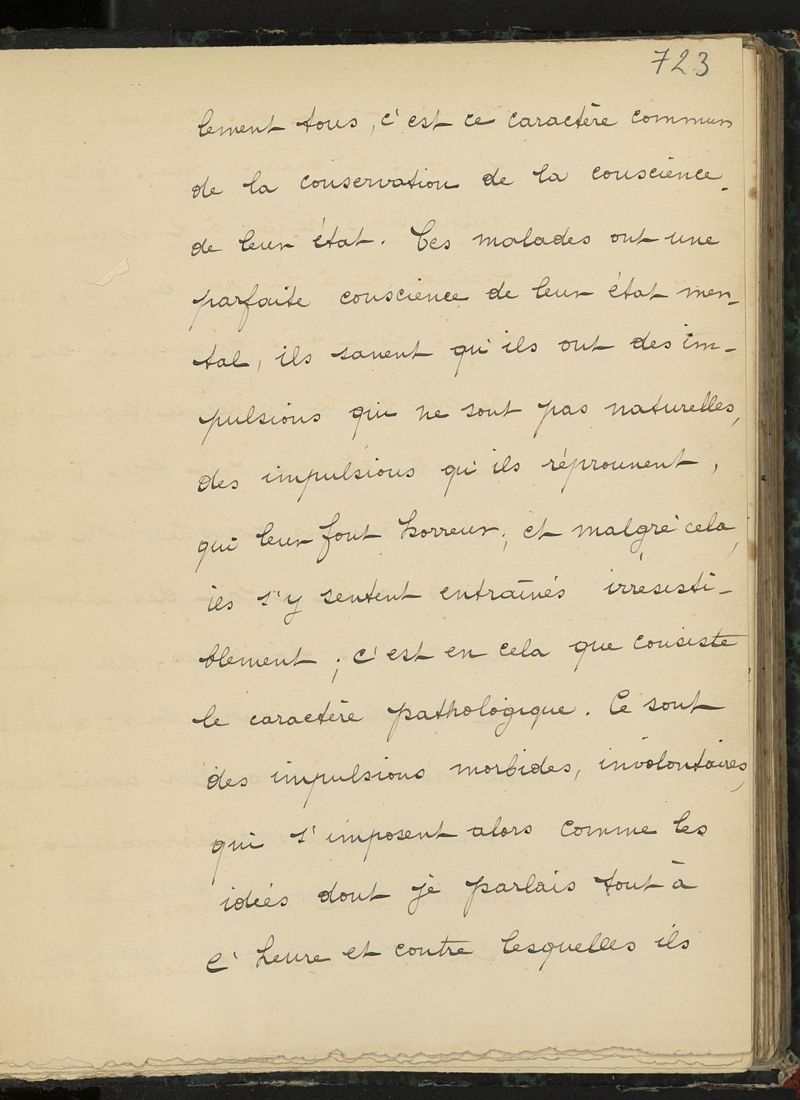 723
lement tous, c'est ce caractère commun
de la conservation de la conscience
de leur état. Ces malades ont une
parfaite conscience de leur état men-
tal, ils savent qu'ils ont des im-
pulsions qui ne sont pas naturelles,
des impulsions qu'ils réprouvent,
qui leur font horreur, et malgré cela,
ils s'y sentent entraînés irrésisti-
blement ; c'est en cela que consiste
le caractère pathologique. Ce sont
des impulsions morbides, involontaires,
qui s'imposent alors comme les
idées dont je parlais tout à
l'heure et contre lesquelles ils